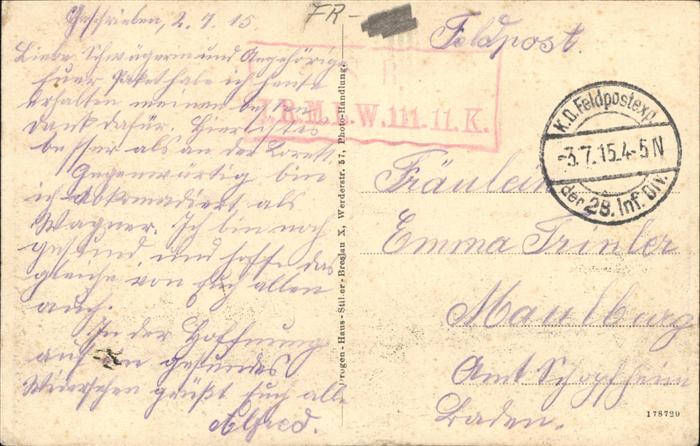 Geschrieben, 2.7.15
Liebe Schwägerin und Angehörige
Euer Paket habe ich heute
erhalten meinen besten
Dank dafür. Hier ist es
besser als an der Lorett.
Gegenwärtig bin
ich abkomadiert als
Wagner. Ich bin noch
gesund und hoffe das
gleiche von Euch allen
auch.
In der Hoffnung
auf ein gesundes
Wiersehen grüßt Euch alle
Alfred.
FR-
Feldpost.
I.W.111.11.K.
K.D. Feldpostexp.
-3.7.15.4-5N
der 28. Inf. Div.
Fräulein
Emma Trinler
Maulburg
Amt Schopfheim
Baden.
Drogen-Haus-Stiller-Breslau X, Werderstr. 57, Photo-Handlung.
178729